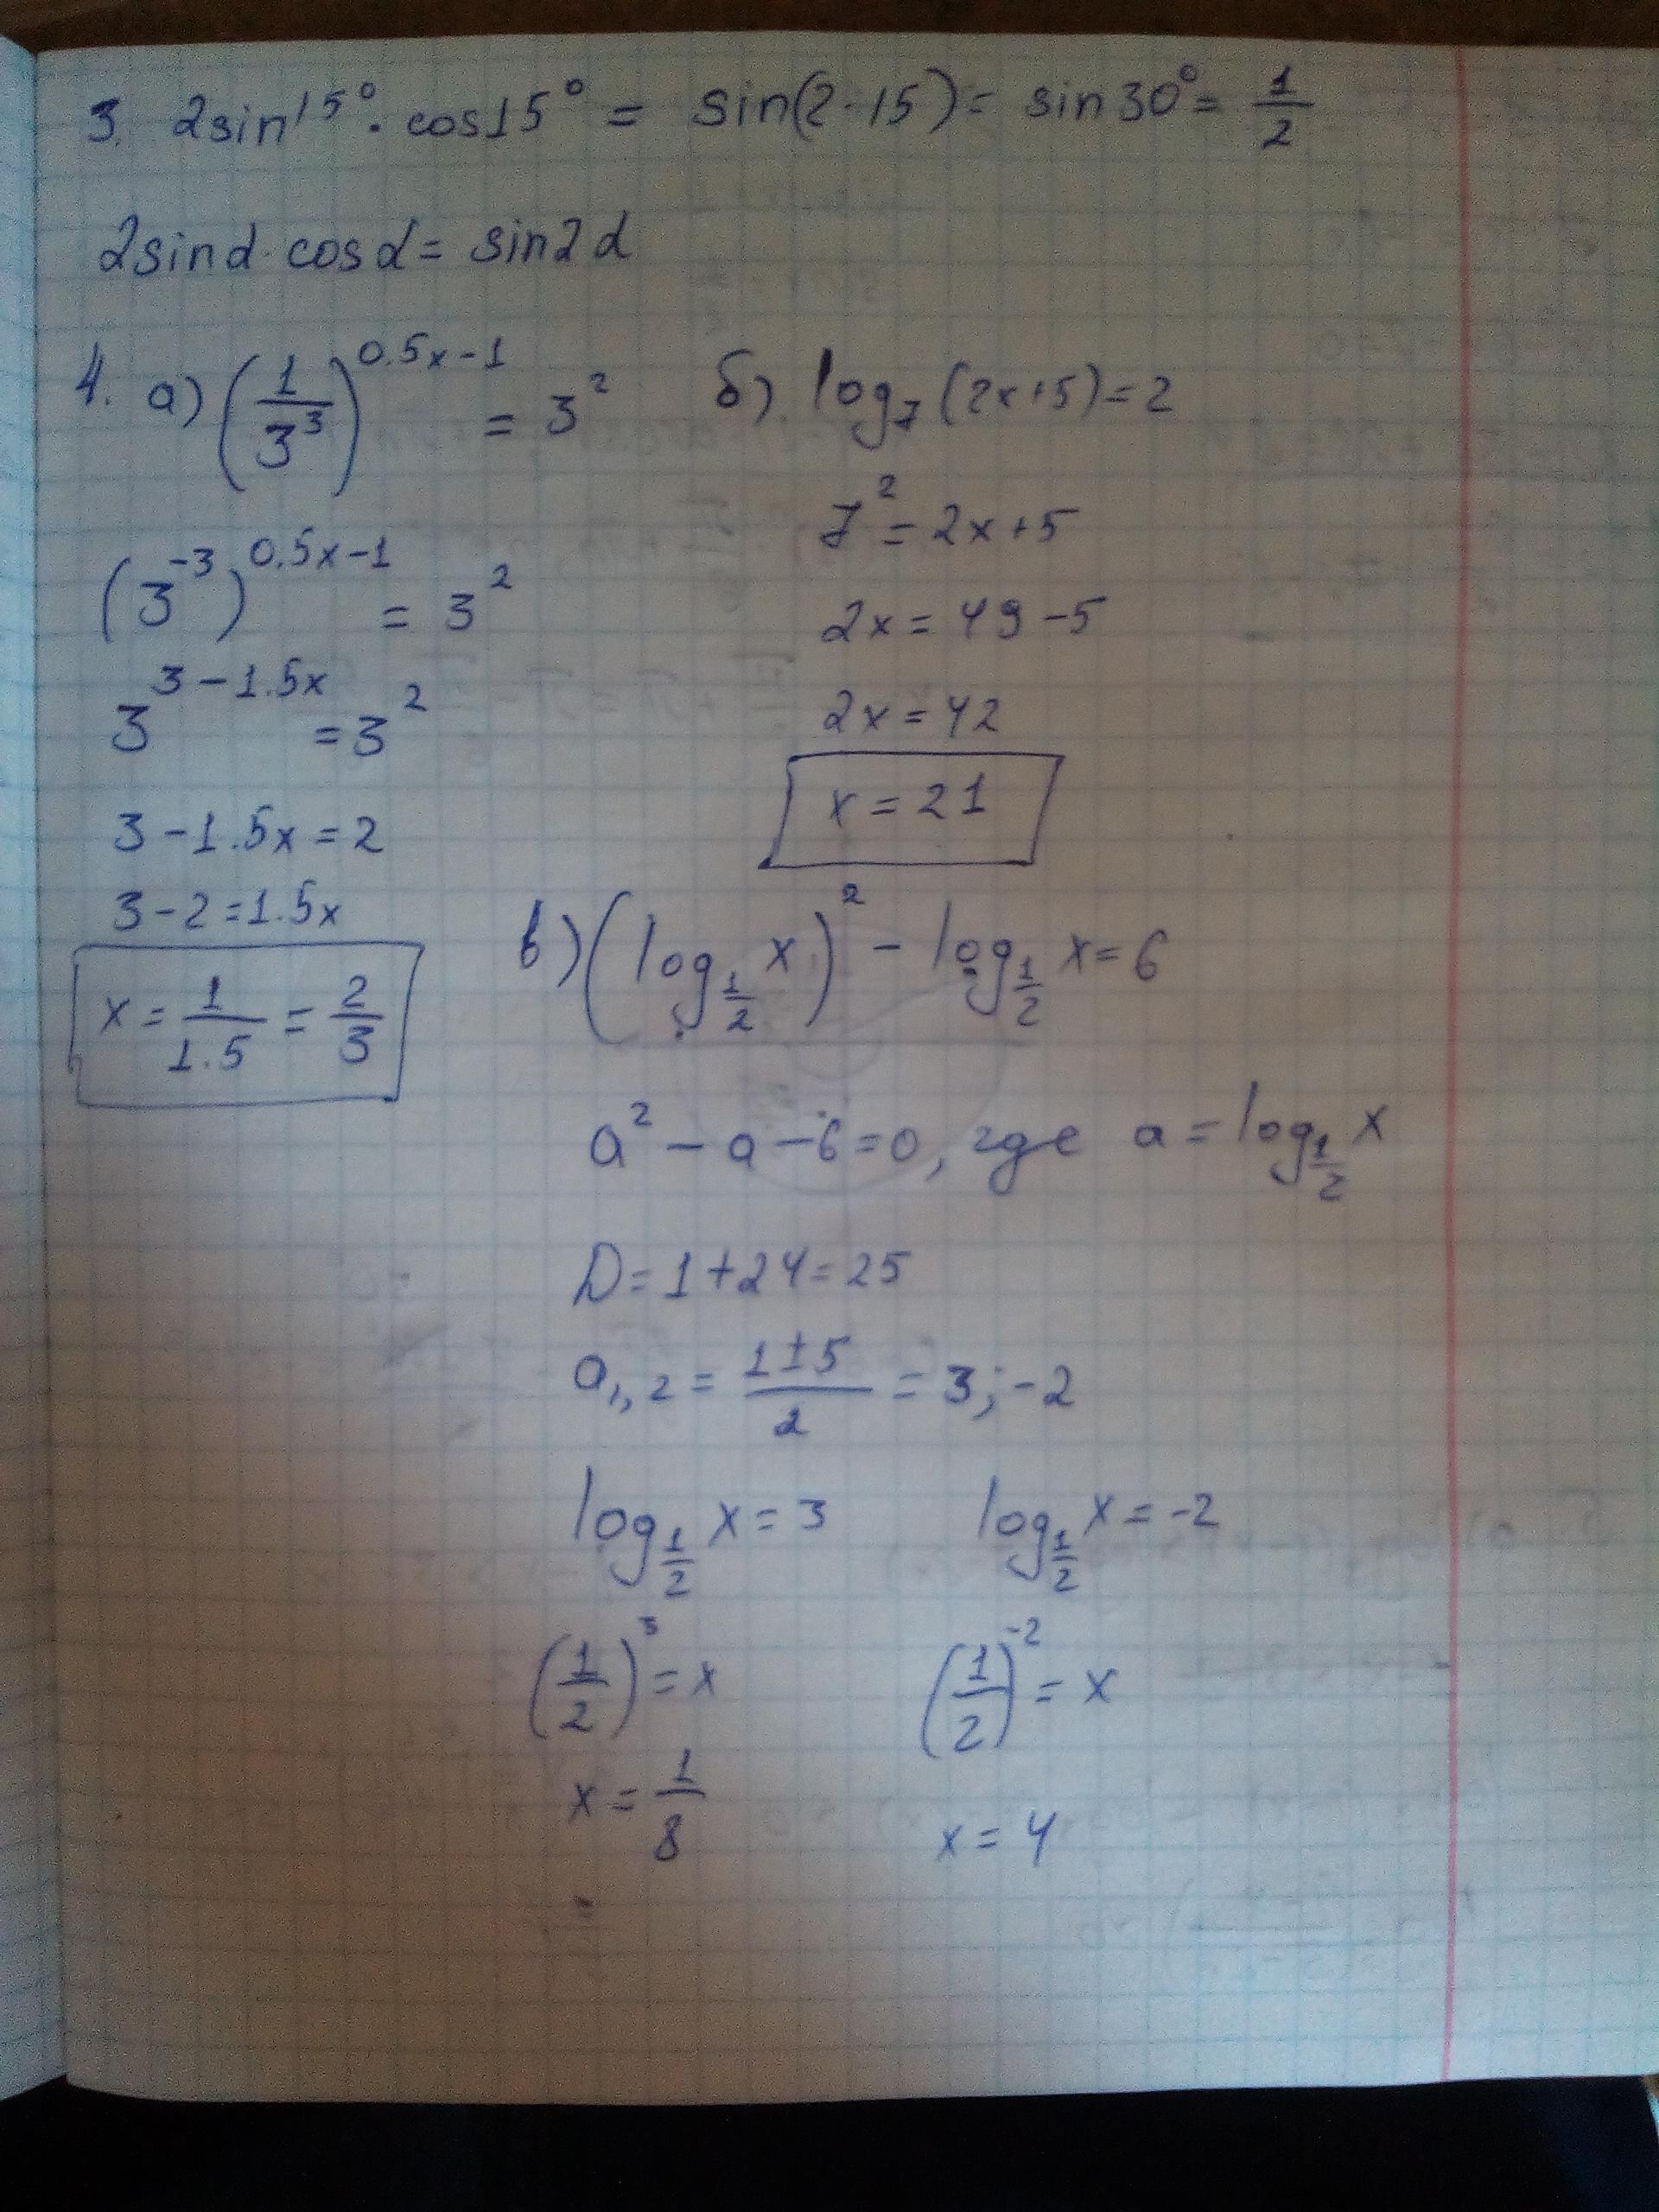 3. 2sin15°·cos15° = sin(2·15) = sin30° = 1/2
2sinα·cosα = sin2α
4. а) (1/3³)^(0.5x-1) = 3²
(3⁻³)^(0.5x-1) = 3²
3^(3-1.5x) = 3²
3-1.5x=2
3-2=1.5x
x = 1/1.5 = 2/3
б) log₇(2x+5)=2
7² = 2x+5
2x = 49-5
2x = 42
x = 21
в) (log_(1/2) x)² - log_(1/2) x = 6
a² - a - 6 = 0, где a = log_(1/2) x
D = 1+24 = 25
a₁,₂ = (1±5)/2 = 3; -2
log_(1/2) x = 3 log_(1/2) x = -2
(1/2)³ = x (1/2)⁻² = x
x = 1/8 x = 4